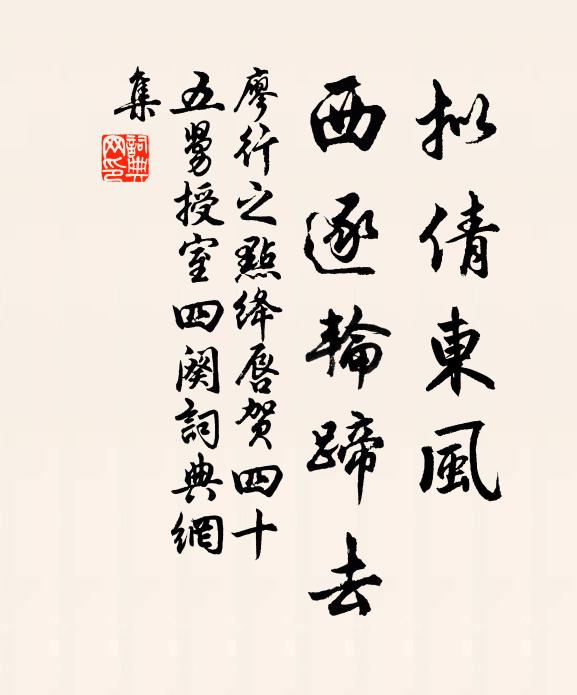 拟倩東風
西逐輪蹄去
廖行之點绛唇贺四十
五舅授室四阕詞典網
集
詞典网印